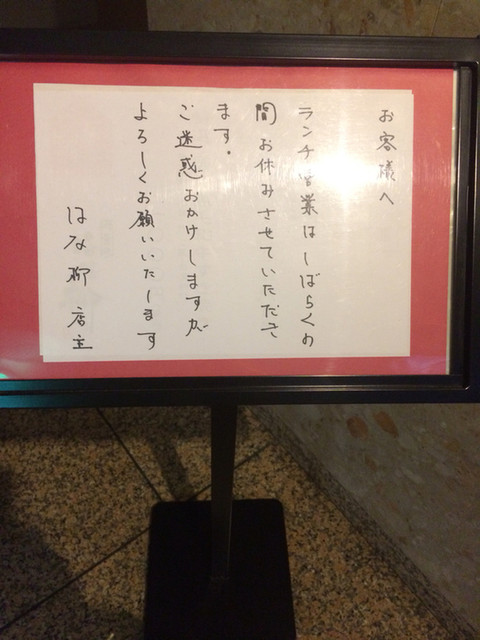 お客様へ
ランチ営業はしばらくの
間お休みさせていただき
ます。
ご迷惑おかけしますが
よろしくお願いいたします
はな柳 店主